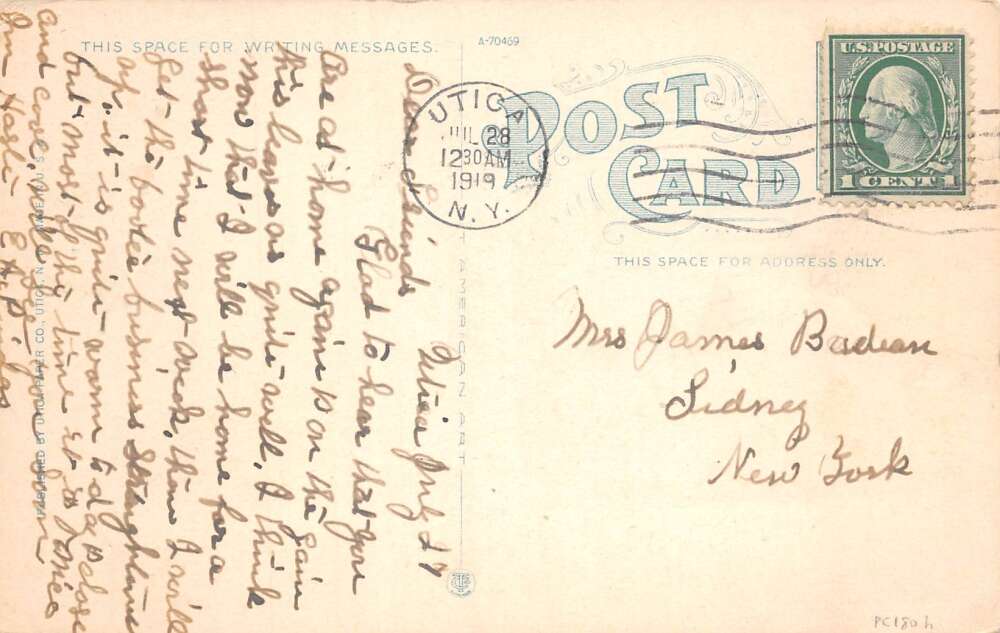 THIS SPACE FOR WRITING MESSAGES.
A-70469
POST
CARD
UTICA
JUL 28
1230 AM
1919
N.Y.
U.S. POSTAGE
1 CENT 1
THIS SPACE FOR ADDRESS ONLY.
Utica July 27
Dear Friends
Glad to hear that you
are at home again & on the gain
this leaves us quite well. I think
now that I will be home for a
short time next week, then I will
get the bootie business Straightened
up. it is quite warm to day & close
but most of the time it is nice
and cool. will see you soon
Im Haste E. H.
Mrs James Badean
Sidney
New York
PUBLISHED BY UTICA PAPER CO., UTICA, N.Y.
AMERICAN ART
PC180h